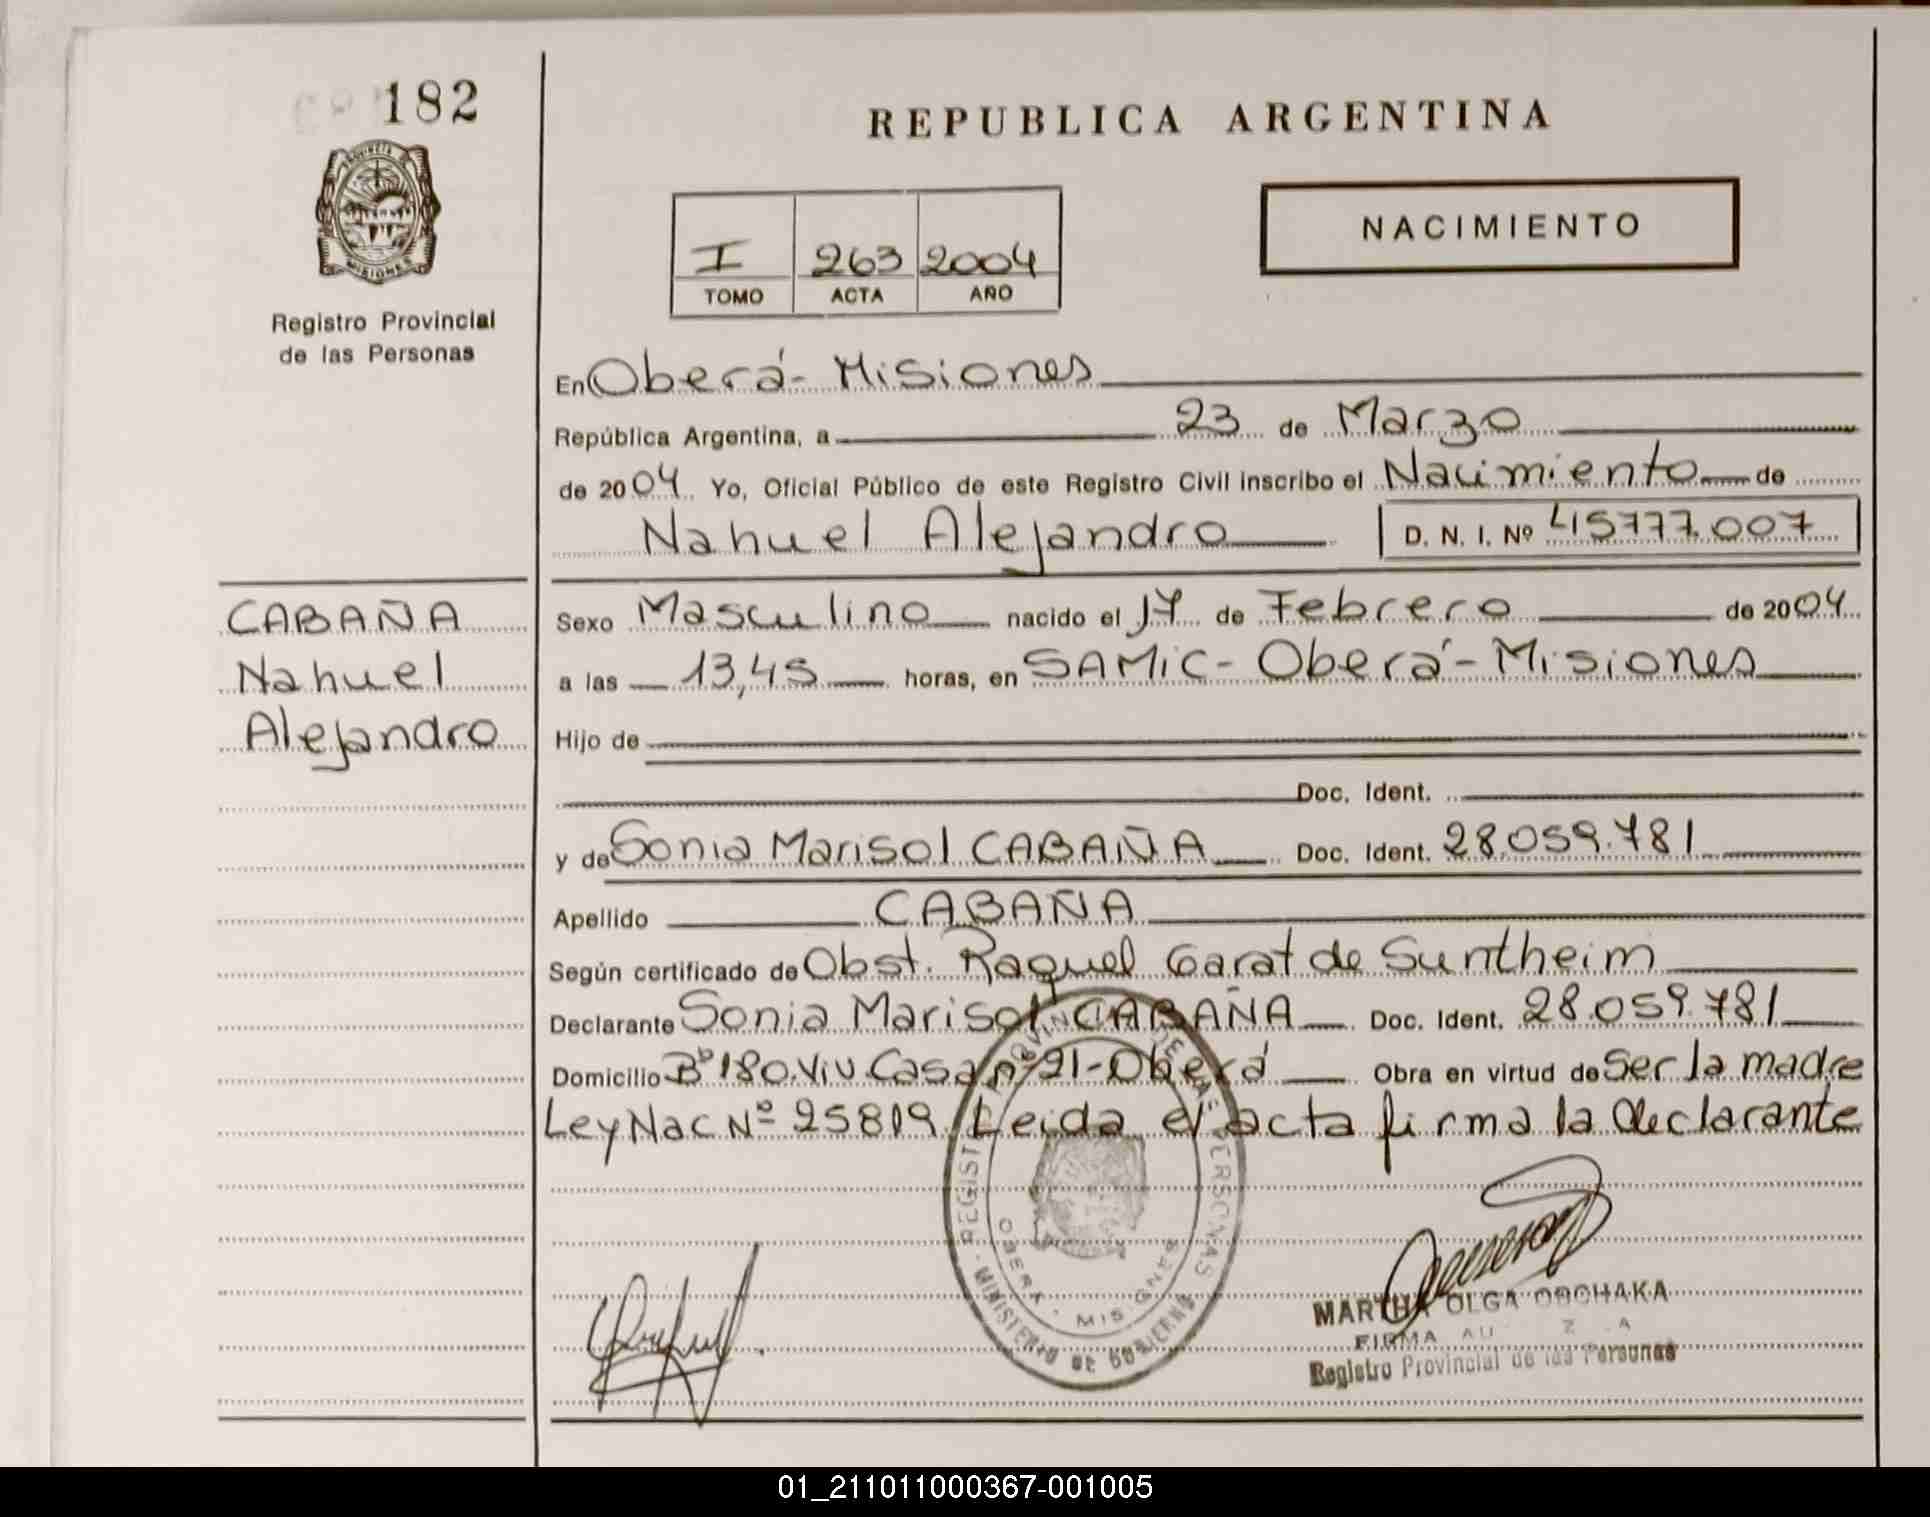 182
REPUBLICA ARGENTINA
PROVINCIA DE MISIONES
Registro Provincial
de las Personas
I 263 2004
TOMO ACTA AÑO
NACIMIENTO
En Oberá - Misiones
República Argentina, a 23 de Marzo
de 2004 Yo, Oficial Público de este Registro Civil inscribo el Nacimiento de
Nahuel Alejandro D. N. I. Nº 45777.007
CABAÑA
Nahuel
Alejandro
Sexo Masculino nacido el 14 de Febrero de 2004
a las 13,45 horas, en SAMIC - Oberá - Misiones
Hijo de
Doc. Ident.
y de Sonia Marisol CABAÑA Doc. Ident. 28.059.781
Apellido CABAÑA
Según certificado de Obst. Raquel Garat de Suntheim
Declarante Sonia Marisol CABAÑA Doc. Ident. 28.059.781
Domicilio Bº 180 Viv Casa nº 21 - Oberá Obra en virtud de Ser la madre
Ley Nac Nº 25819 Leida el acta firma la declarante
REGISTRO PROVINCIAL DE LAS PERSONAS
OBERA - MISIONES
MINISTERIO DE GOBIERNO
MARTHA OLGA OBCHAKA
FIRMA
Registro Provincial de las Personas
01_211011000367-001005